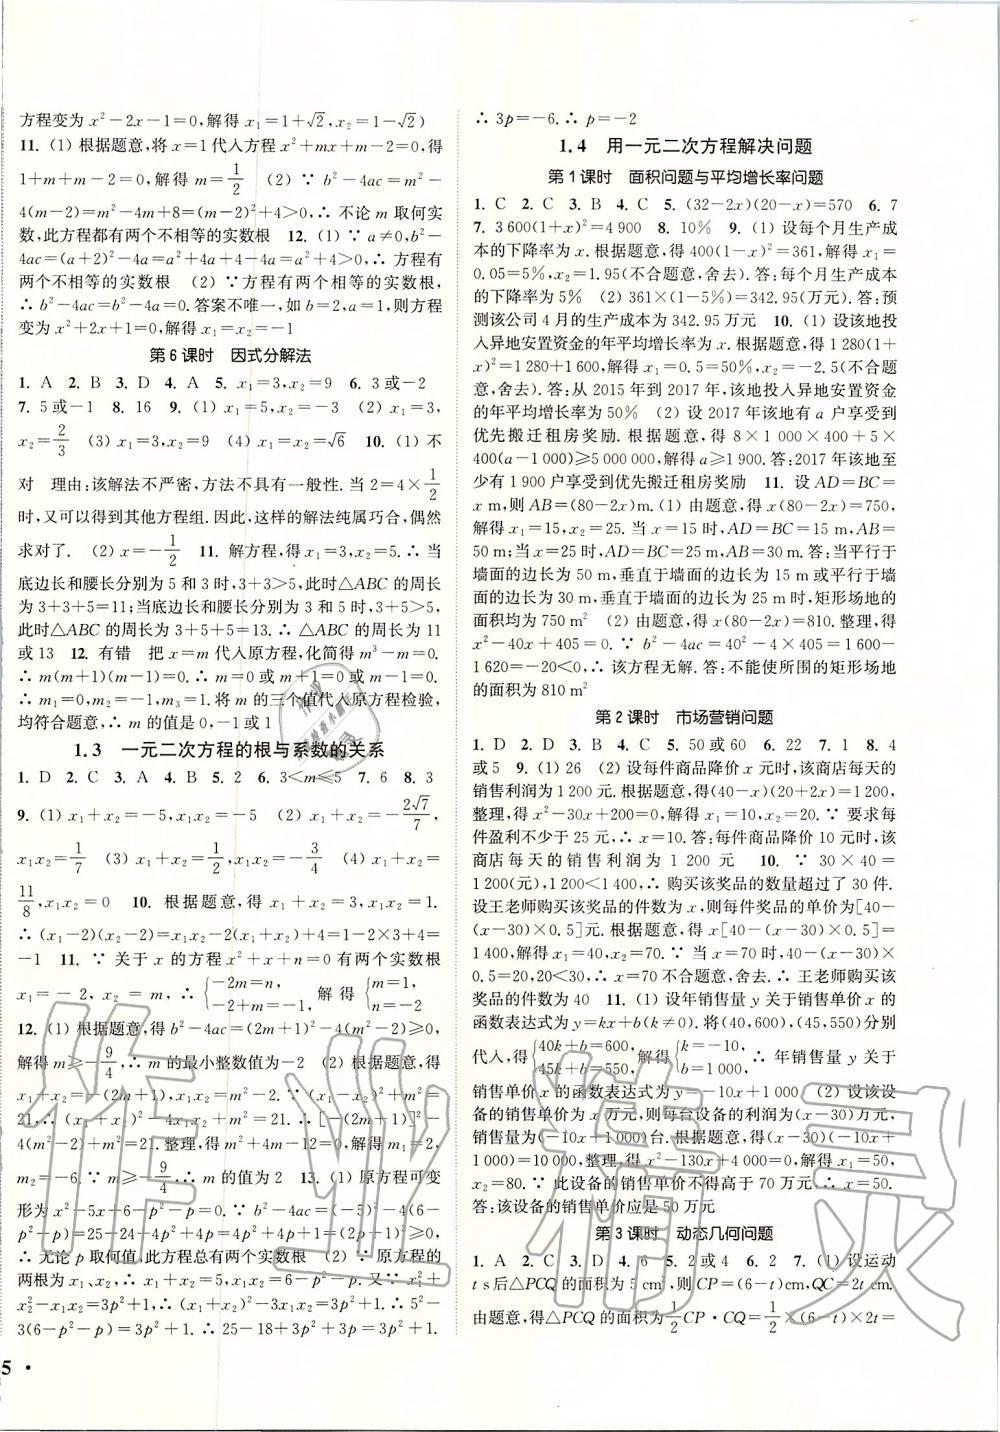 方程变为 x²－2x－1＝0,解得 x₁＝1＋√2,x₂＝1－√2)
11. (1) 根据题意,将 x＝1 代入方程 x²＋mx＋m－2＝0,得
1＋m＋m－2＝0,解得 m＝1/2 (2) ∵ b²－4ac＝m²－
4(m－2)＝m²－4m＋8＝(m－2)²＋4＞0,∴ 不论 m 取何实
数,此方程都有两个不相等的实数根 12. (1) ∵ a≠0,b²－
4ac＝(a＋2)²－4a＝a²＋4a＋4－4a＝a²＋4＞0,∴ 方程有
两个不相等的实数根 (2) ∵方程有两个相等的实数根,
∴ b²－4ac＝b²－4a＝0. 答案不唯一,如 b＝2,a＝1,则方程
变为 x²＋2x＋1＝0,解得 x₁＝x₂＝－1
第 6 课时 因式分解法
1. A 2. B 3. D 4. A 5. x₁＝3,x₂＝9 6. 3 或－2
7. 5 或－1 8. 16 9. (1) x₁＝5,x₂＝－3 (2) x₁＝3,
x₂＝2/3 (3) x₁＝3,x₂＝9 (4) x₁＝x₂＝√6 10. (1) 不
对 理由:该解法不严密,方法不具有一般性. 当 2＝4×1/2
时,又可以得到其他方程组. 因此,这样的解法纯属巧合,偶然
求对了. (2) x＝－1/2 11. 解方程,得 x₁＝3,x₂＝5. ∴ 当
底边长和腰长分别为 5 和 3 时,3＋3＞5,此时△ABC 的周长
为 3＋3＋5＝11;当底边长和腰长分别为 3 和 5 时,3＋5＞5,
此时△ABC 的周长为 3＋5＋5＝13. ∴ △ABC 的周长为 11
或 13 12. 有错 把 x＝m 代入原方程,化简得 m³－m＝0.
∴ m(m＋1)(m－1)＝0. ∴ m＝0 或 m＋1＝0 或 m－1＝0.
∴ m₁＝0,m₂＝－1,m₃＝1. 将 m 的三个值代入原方程检验,
均符合题意,∴ m 的值是 0 或－1 或 1
1.3 一元二次方程的根与系数的关系
1. D 2. C 3. A 4. B 5. 2 6. 3＜m≤5 7. 6 8. 3
9. (1) x₁＋x₂＝－5,x₁x₂＝－5 (2) x₁＋x₂＝－2√7/7,
x₁x₂＝1/7 (3) x₁＋x₂＝1/2,x₁x₂＝－3/4 (4) x₁＋x₂＝
11/8,x₁x₂＝0 10. 根据题意,得 x₁＋x₂＝3,x₁x₂＝1.
∴ (x₁－2)(x₂－2)＝x₁x₂－2(x₁＋x₂)＋4＝1－2×3＋4＝
－1 11. ∵ 关于 x 的方程 x²＋x＋n＝0 有两个实数根
x₁＝－2, x₂＝m,∴ {－2m＝n, －2＋m＝－1, 解得 {m＝1, n＝－2
12. (1) 根据题意,得 b²－4ac＝(2m＋1)²－4(m²－2)≥0,
解得 m≥－9/4,∴ m 的最小整数值为－2 (2) 根据题意,得
x₁＋x₂＝－(2m＋1),x₁x₂＝m²－2. ∵ (x₁－x₂)²＋m²＝
21,∴ (x₁＋x₂)²－4x₁x₂＋m²＝21. ∴ [－(2m＋1)]²－
4(m²－2)＋m²＝21. 整理,得 m²＋4m－12＝0,解得 m₁＝2,
m₂＝－6. ∵ m≥－9/4,∴ m 的值为 2 13. (1) 原方程可变
形为 x²－5x＋6－p²－p＝0. ∵ b²－4ac＝(－5)²－4(6－
p²－p)＝25－24＋4p²＋4p＝4p²＋4p＋1＝(2p＋1)²≥0,
∴ 无论 p 取何值,此方程总有两个实数根 (2) ∵ 原方程的
两根为 x₁、x₂,∴ x₁＋x₂＝5,x₁x₂＝6－p²－p. 又∵ x₁²＋
x₂²－x₁x₂＝3p²＋1,∴ (x₁＋x₂)²－3x₁x₂＝3p²＋1. ∴ 5²－
3(6－p²－p)＝3p²＋1. ∴ 25－18＋3p²＋3p＝3p²＋1.
5 ·
∴ 3p＝－6. ∴ p＝－2
1.4 用一元二次方程解决问题
第 1 课时 面积问题与平均增长率问题
1. C 2. C 3. B 4. C 5. (32－2x)(20－x)＝570 6. 7
7. 3 600(1＋x)²＝4 900 8. 10% 9. (1) 设每个月生产成
本的下降率为 x. 根据题意,得 400(1－x)²＝361,解得 x₁＝
0.05＝5%,x₂＝1.95(不合题意,舍去). 答:每个月生产成本
的下降率为 5% (2) 361×(1－5%)＝342.95(万元). 答:预
测该公司 4 月的生产成本为 342.95 万元 10. (1) 设该地投
入异地安置资金的年平均增长率为 x. 根据题意,得 1 280(1＋
x)²＝1 280＋1 600,解得 x₁＝0.5＝50%,x₂＝－2.5(不合题
意,舍去). 答:从 2015 年到 2017 年,该地投入异地安置资金
的年平均增长率为 50% (2) 设 2017 年该地有 a 户享受到
优先搬迁租房奖励. 根据题意,得 8×1 000×400＋5×
400(a－1 000)≥5 000 000,解得 a≥1 900. 答:2017 年该地至
少有 1 900 户享受到优先搬迁租房奖励 11. 设 AD＝BC＝
x m,则 AB＝(80－2x)m. (1) 由题意,得 x(80－2x)＝750,
解得 x₁＝15,x₂＝25. 当 x＝15 时,AD＝BC＝15 m,AB＝
50 m;当 x＝25 时,AD＝BC＝25 m,AB＝30 m. 答:当平行于
墙面的边长为 50 m,垂直于墙面的边长为 15 m或平行于墙面
的边长为 30 m,垂直于墙面的边长为 25 m时,矩形场地
的面积均为 750 m² (2) 由题意,得 x(80－2x)＝810. 整理,得
x²－40x＋405＝0. ∵ b²－4ac＝40²－4×405＝1 600－
1 620＝－20＜0,∴ 该方程无解. 答:不能使所围的矩形场地
的面积为 810 m²
第 2 课时 市场营销问题
1. D 2. D 3. B 4. C 5. 50 或 60 6. 22 7. 1 8. 4
或 5 9. (1) 26 (2) 设每件商品降价 x 元时,该商店每天的
销售利润为 1 200 元. 根据题意,得(40－x)(20＋2x)＝1 200,
整理,得 x²－30x＋200＝0,解得 x₁＝10,x₂＝20. ∵ 要求每
件盈利不少于 25 元,∴ x＝10. 答:每件商品降价 10 元时,该
商店每天的销售利润为 1 200 元 10. ∵ 30×40＝
1 200(元),1 200＜1 400,∴ 购买该奖品的数量超过了 30 件.
设王老师购买该奖品的件数为 x,则每件奖品的单价为[40－
(x－30)×0.5]元. 根据题意,得 x[40－(x－30)×0.5]＝
1 400,解得 x₁＝40,x₂＝70. ∵ 当 x＝70 时,40－(x－30)×
0.5＝20,20＜30,∴ x＝70 不合题意,舍去. ∴ 王老师购买该
奖品的件数为 40 11. (1) 设年销售量 y 关于销售单价 x 的
函数表达式为 y＝kx＋b(k≠0). 将(40,600),(45,550)分别
代入,得 {40k＋b＝600, 45k＋b＝550, 解得 {k＝－10, b＝1 000, ∴ 年销售量 y 关于
销售单价 x 的函数表达式为 y＝－10x＋1 000 (2) 设该设
备的销售单价为 x 万元,则每台设备的利润为(x－30)万元,
销售数量为(－10x＋1 000)台. 根据题意,得(x－30)(－10x＋
1 000)＝10 000. 整理,得 x²－130x＋4 000＝0,解得 x₁＝50,
x₂＝80. ∵ 此设备的销售单价不得高于 70 万元,∴ x＝50.
答:该设备的销售单价应是 50 万元
第 3 课时 动态几何问题
1. A 2. C 3. D 4. 6 5. 2 或 4 6. 2 7. (1) 设运动
t s后△PCQ 的面积为 5 cm²,则 CP＝(6－t)cm,QC＝2t cm.
由题意,得△PCQ 的面积为1/2CP·CQ＝1/2×(6－t)×2t＝
作业精灵